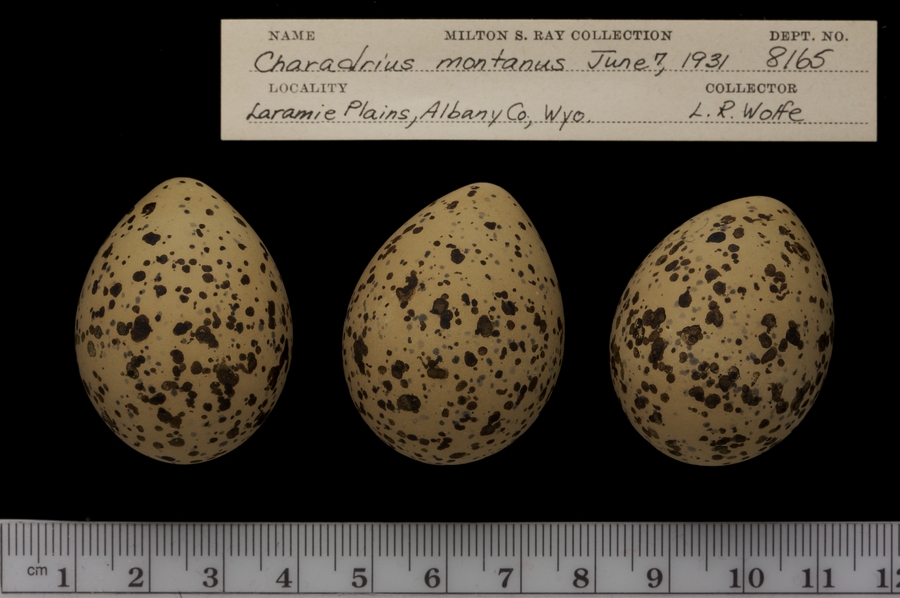 NAME MILTON S. RAY COLLECTION DEPT. NO.
Charadrius montanus June 7, 1931 8165
LOCALITY COLLECTOR
Laramie Plains, Albany Co., Wyo. L. R. Wolfe
cm 1 2 3 4 5 6 7 8 9 10 11 12